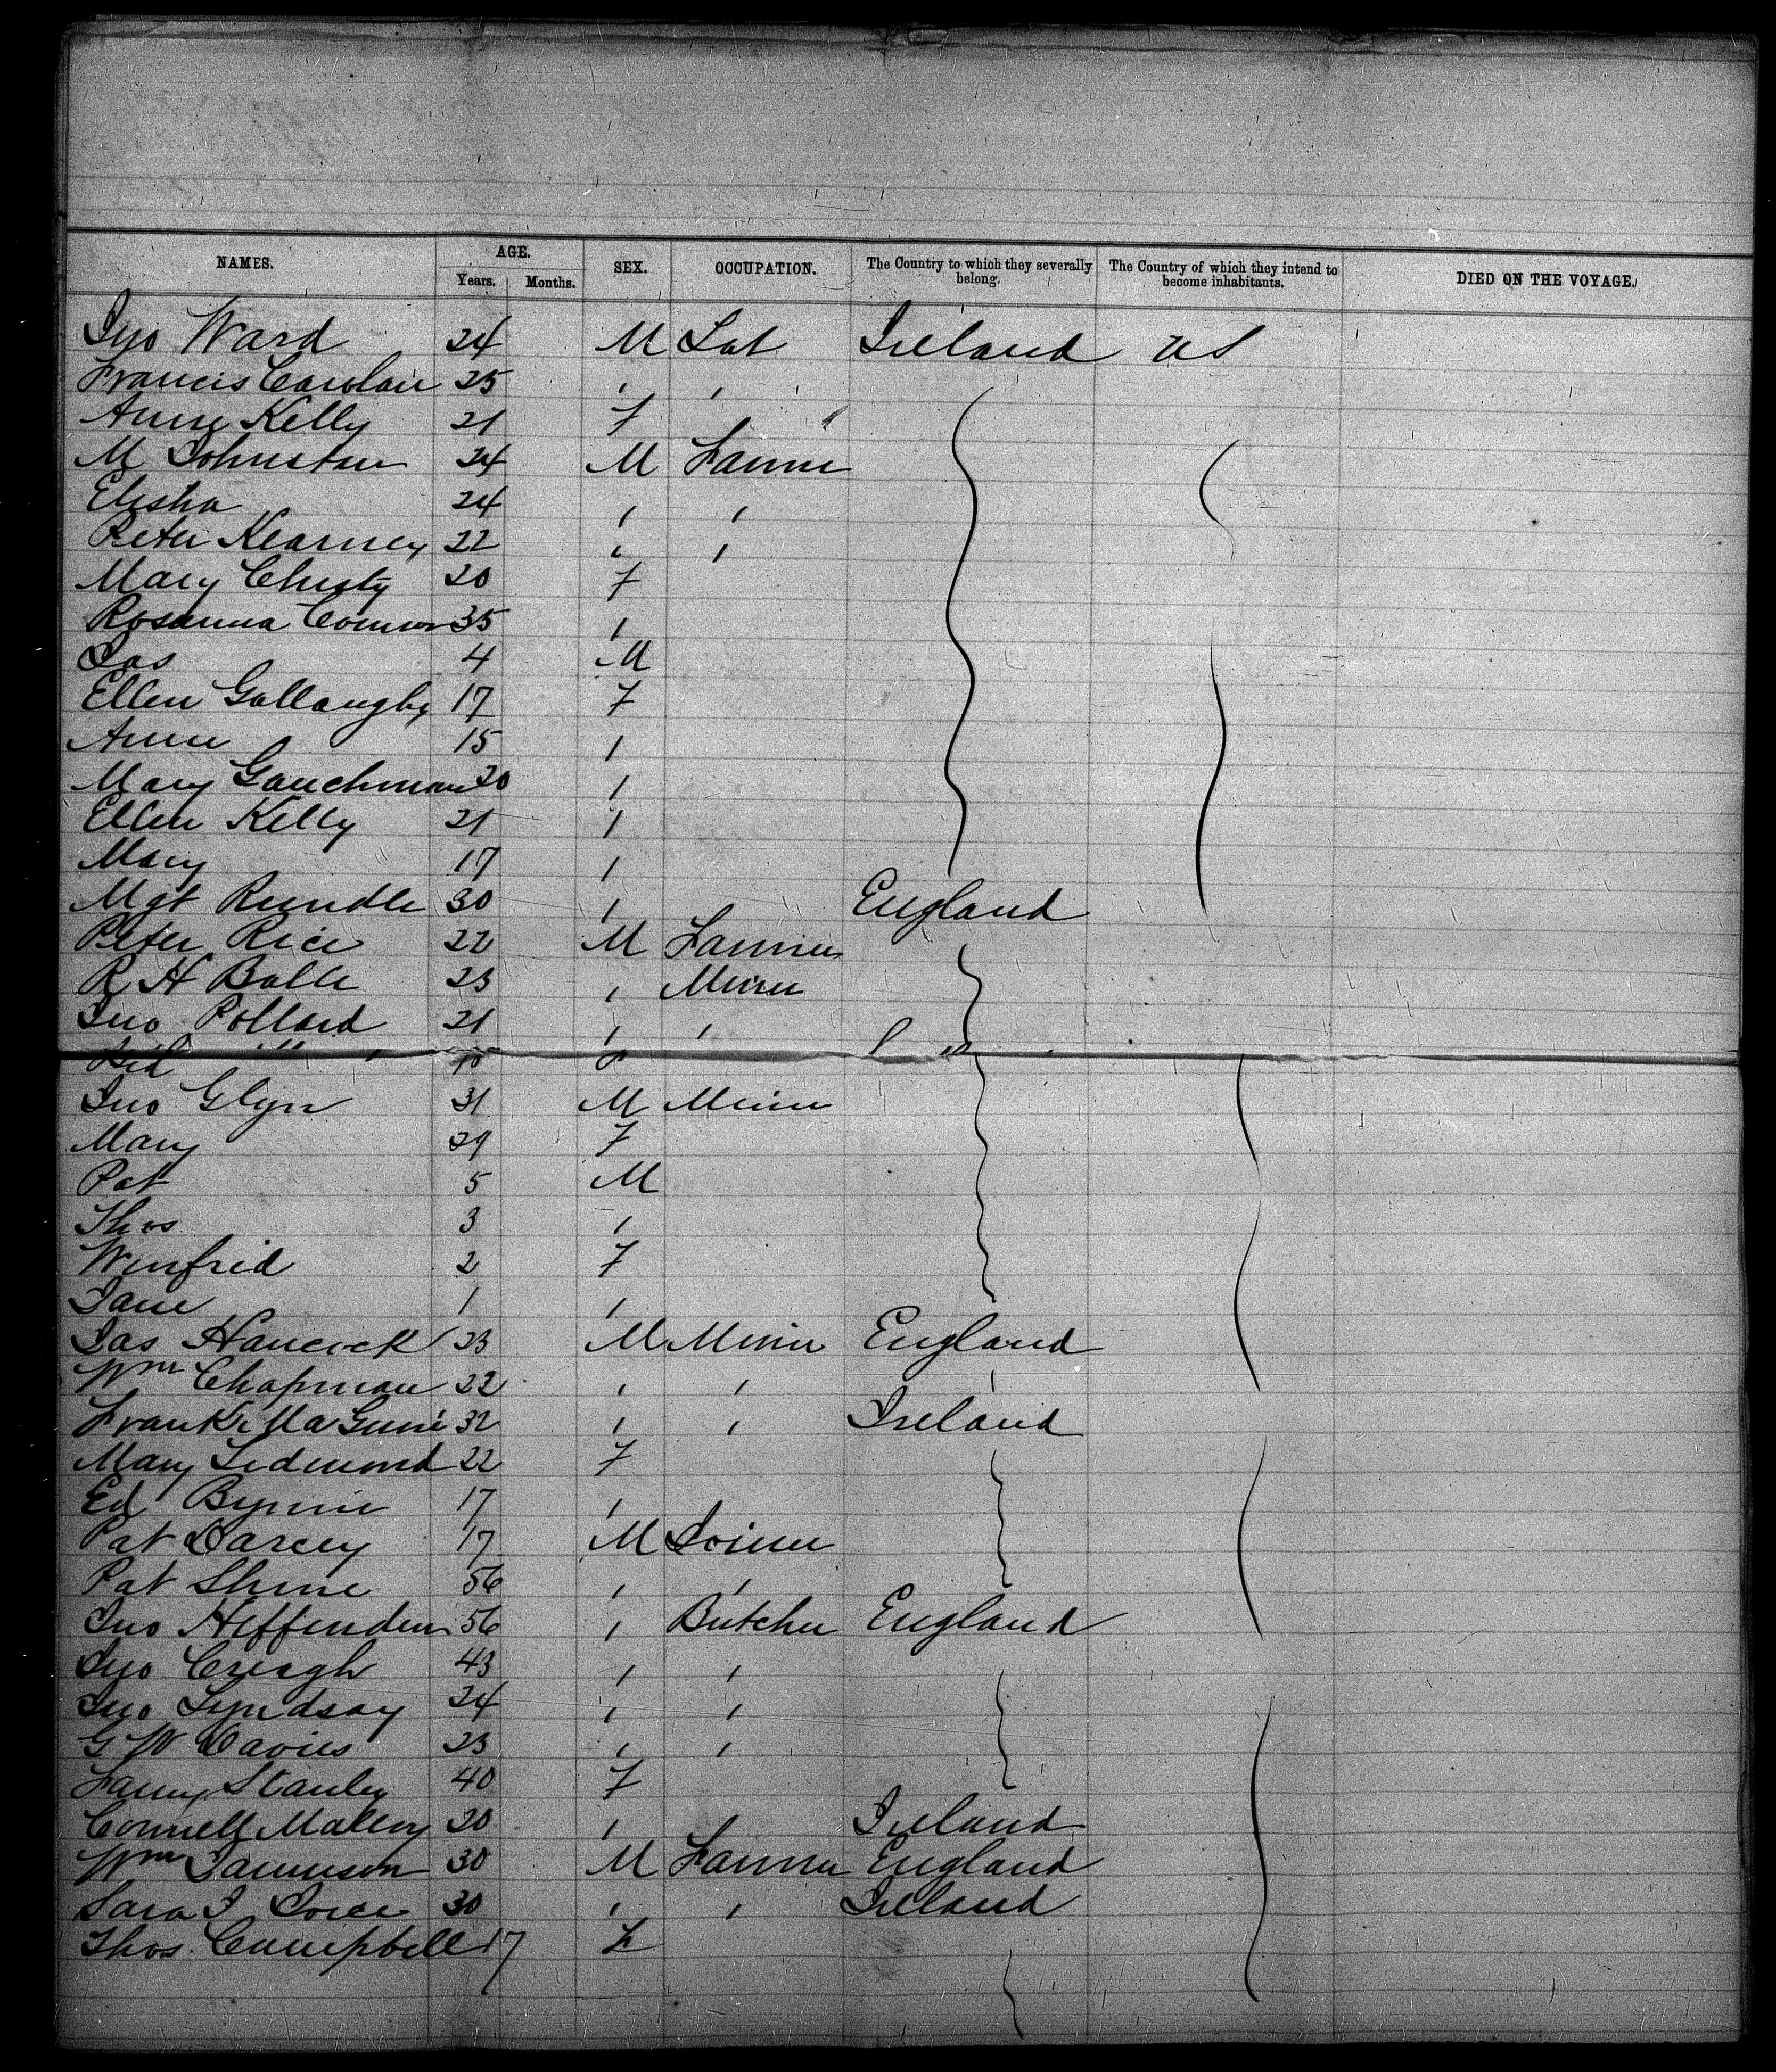 NAMES. AGE. Years. Months. SEX. OCCUPATION. The Country to which they severally belong. The Country of which they intend to become inhabitants. DIED ON THE VOYAGE.
Jno Ward 24 M Lab Ireland US
Francis Carolan 25 " "
Anne Kelly 21 F
M Johnston 24 M Farmer
Elisha 24 " "
Peter Kearney 22 " "
Mary Christy 20 F
Rosanna Connor 35 "
Jas 4 M
Ellen Gallaughy 17 F
Anne 15 "
Mary Gauchman 20 "
Ellen Kelly 21 "
Mary 17 "
Mgt Rundle 30 " England
Peter Rice 22 M Farmer
R H Balle 23 " Miner
Jno Pollard 21 " "
10
Jno Glyn 31 M Miner
Mary 29 F
Pat 5 M
Thos 3 "
Winfrid 2 F
Jane 1 "
Jas Hancock 23 M Miner England
Wm Chapman 22 " " "
Frank MaGuire 32 " " Ireland
Mary Redmond 22 F
Ed Byrne 17 "
Pat Darcey 17 M Joiner
Pat Shine 56 " "
Jno Heffenden 56 " Butcher England
Jno Creagh 43 " "
Jno Lyndsay 24 " "
G W Davies 23 " "
Fanny Stanley 40 F
Connell Malloy 20 " Ireland
Wm Jamieson 30 M Farmer England
Sara J 30 " " Ireland
Thos Campbell 17 F